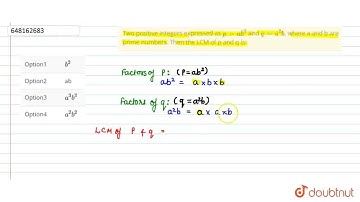 648162683
Two positive integers expressed as p = ab² and q = a³b, where a and b are
prime numbers. Then the LCM of p and q is:
Option1 b³
Option2 ab
Option3 a³b³
Option4 a³b²
Factors of P: (P=ab²)
ab² = a x b x b
Factors of q: (q=a³b)
a³b = a x a x b
LCM of P & q =
doubtnut